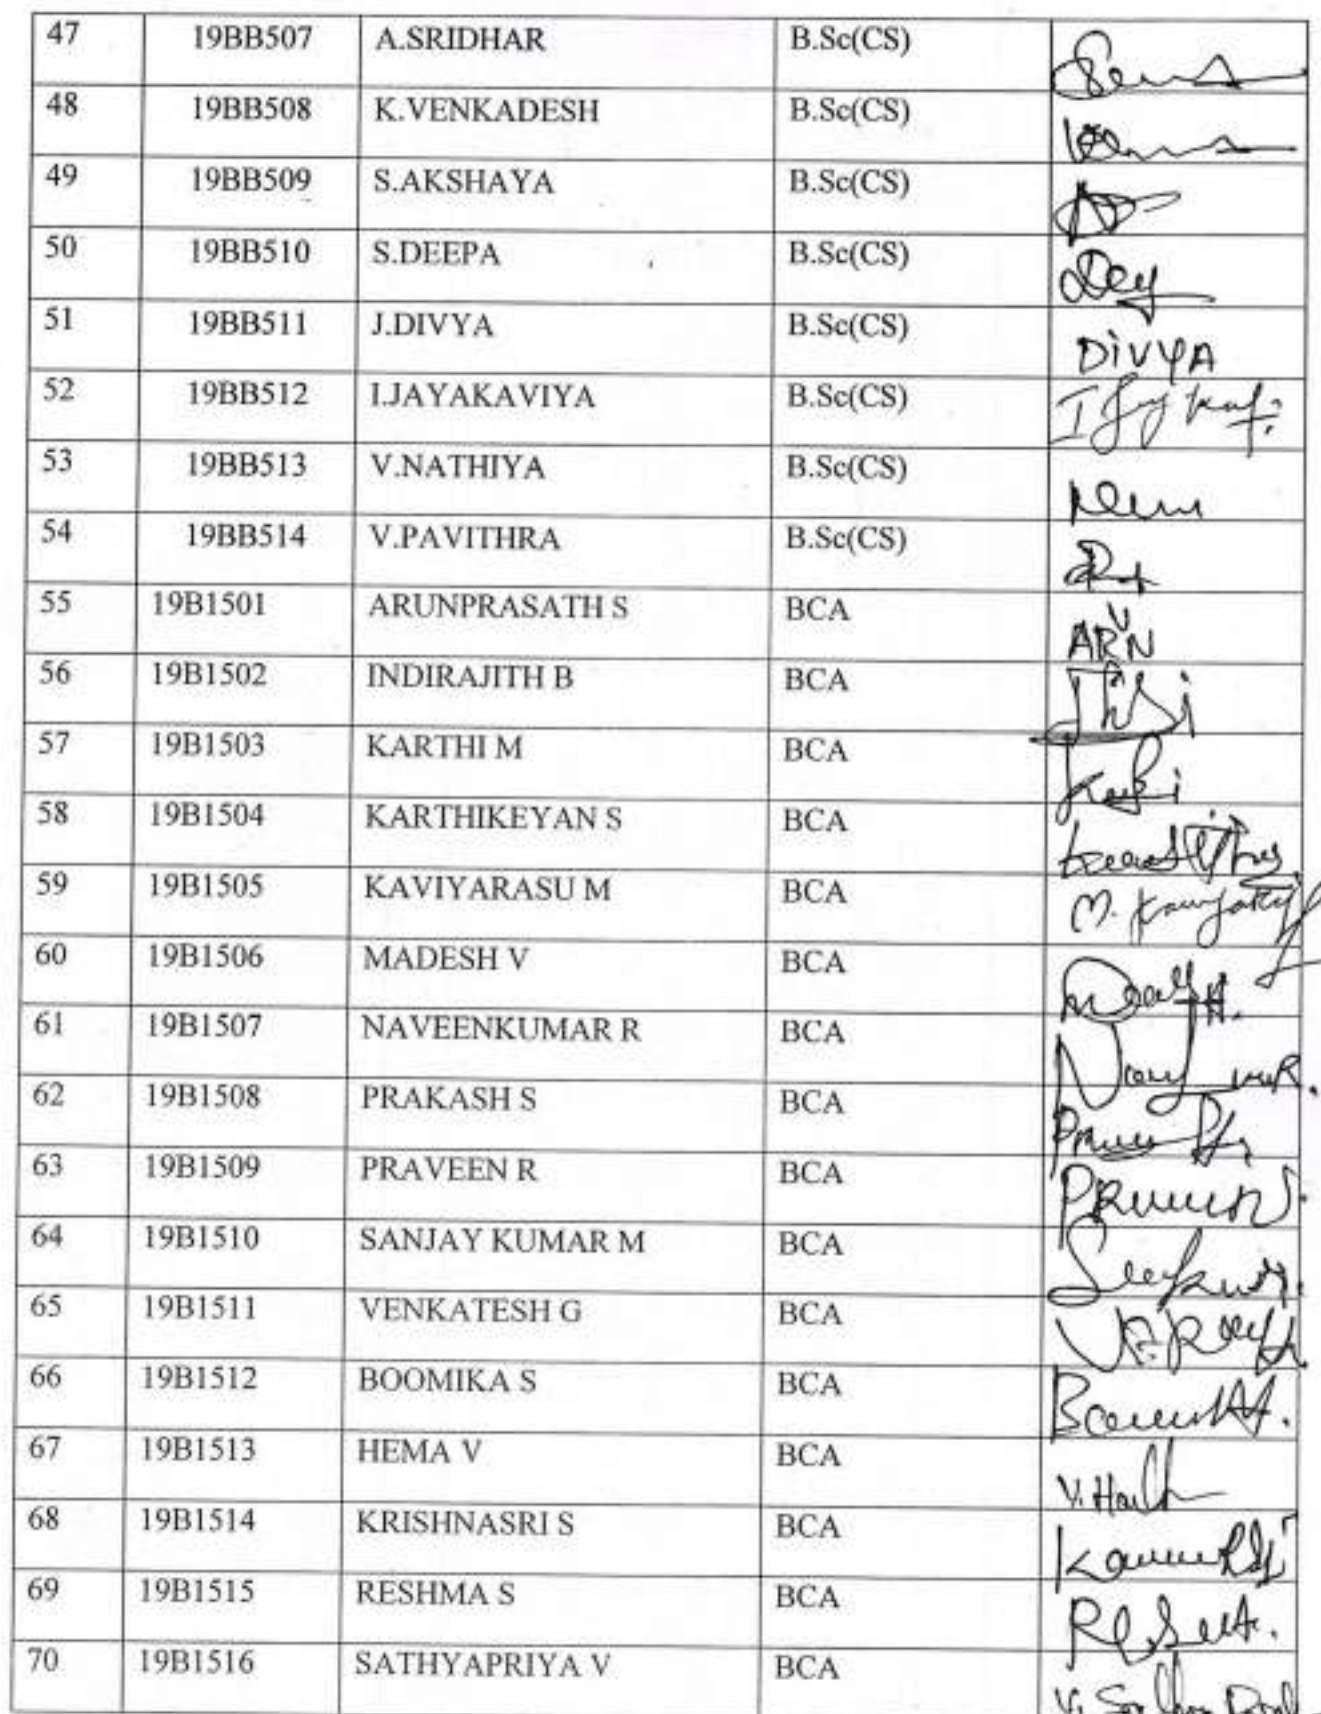 47 19BB507 A.SRIDHAR B.Sc(CS)
48 19BB508 K.VENKADESH B.Sc(CS)
49 19BB509 S.AKSHAYA B.Sc(CS)
50 19BB510 S.DEEPA B.Sc(CS)
51 19BB511 J.DIVYA B.Sc(CS) DiVYA
52 19BB512 I.JAYAKAVIYA B.Sc(CS)
53 19BB513 V.NATHIYA B.Sc(CS)
54 19BB514 V.PAVITHRA B.Sc(CS)
55 19B1501 ARUNPRASATH S BCA ARUN
56 19B1502 INDIRAJITH B BCA
57 19B1503 KARTHI M BCA
58 19B1504 KARTHIKEYAN S BCA
59 19B1505 KAVIYARASU M BCA
60 19B1506 MADESH V BCA
61 19B1507 NAVEENKUMAR R BCA
62 19B1508 PRAKASH S BCA
63 19B1509 PRAVEEN R BCA
64 19B1510 SANJAY KUMAR M BCA
65 19B1511 VENKATESH G BCA
66 19B1512 BOOMIKA S BCA
67 19B1513 HEMA V BCA
68 19B1514 KRISHNASRI S BCA
69 19B1515 RESHMA S BCA
70 19B1516 SATHYAPRIYA V BCA